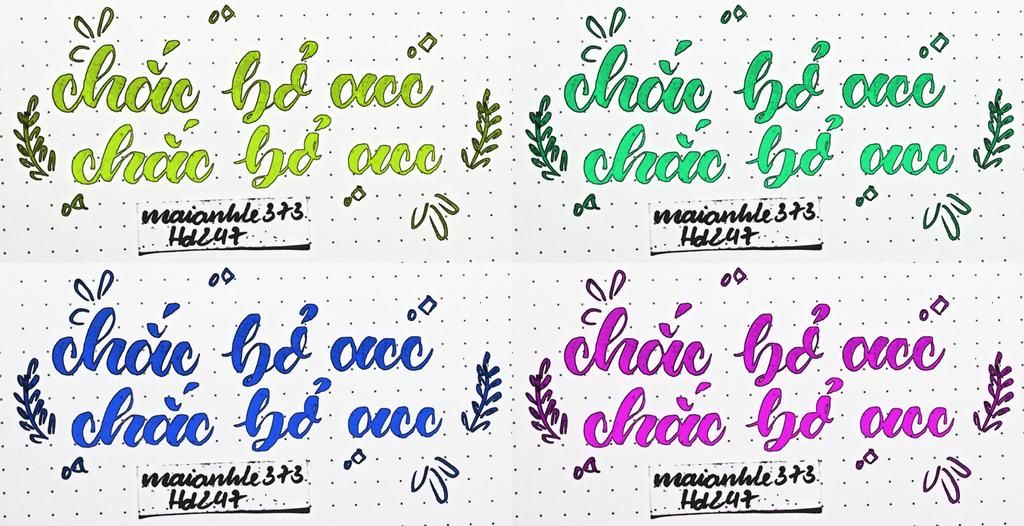 chắc bỏ acc
chắc bỏ acc
maianhle373
Hd247
chắc bỏ acc
chắc bỏ acc
maianhle373
Hd247
chắc bỏ acc
chắc bỏ acc
maianhle373
Hd247
chắc bỏ acc
chắc bỏ acc
maianhle373
Hd247